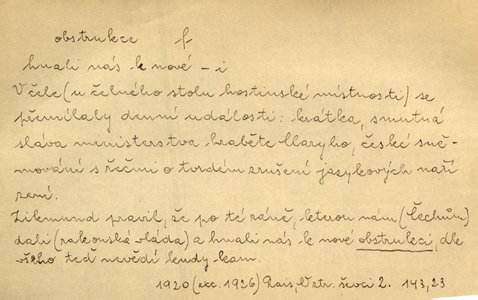 obstrukce f
hnali nás k nové - i
V čele (u čelného stolu hostinské místnosti) se
přemílaly denní události: krátká, smutná
sláva ministerstva hraběte Claryho, české sně-
mování s řečmi o tvrdém zrušení jazykových naří
zení.
Zikmund pravil, že po té ráně, kterou nám (Čechům)
dali (rakouská vláda) a hnali nás k nové obstrukci, dle
všeho teď nevědí kudy kam.
1920 (zkc. 1926) Rais, V. str. ševci 2. 143,23